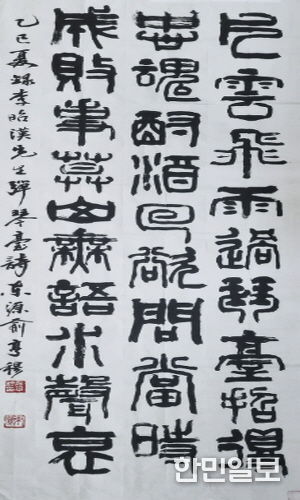 片雲飛雨過琴臺招得
忠魂酹酒回欲問當時
成敗事莫山無語水聲哀
乙巳夏錄李昭漢先生彈琴臺詩 東源 兪亨
한민일보